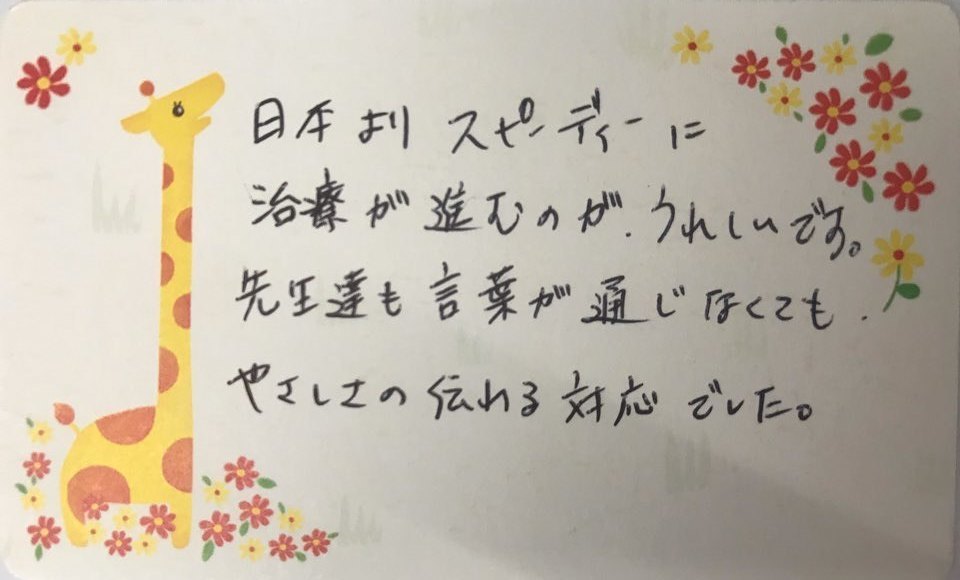 日本より スピーディーに
治療が進むのが、うれしいです。
先生達も言葉が通じなくても、
やさしさの伝わる対応でした。